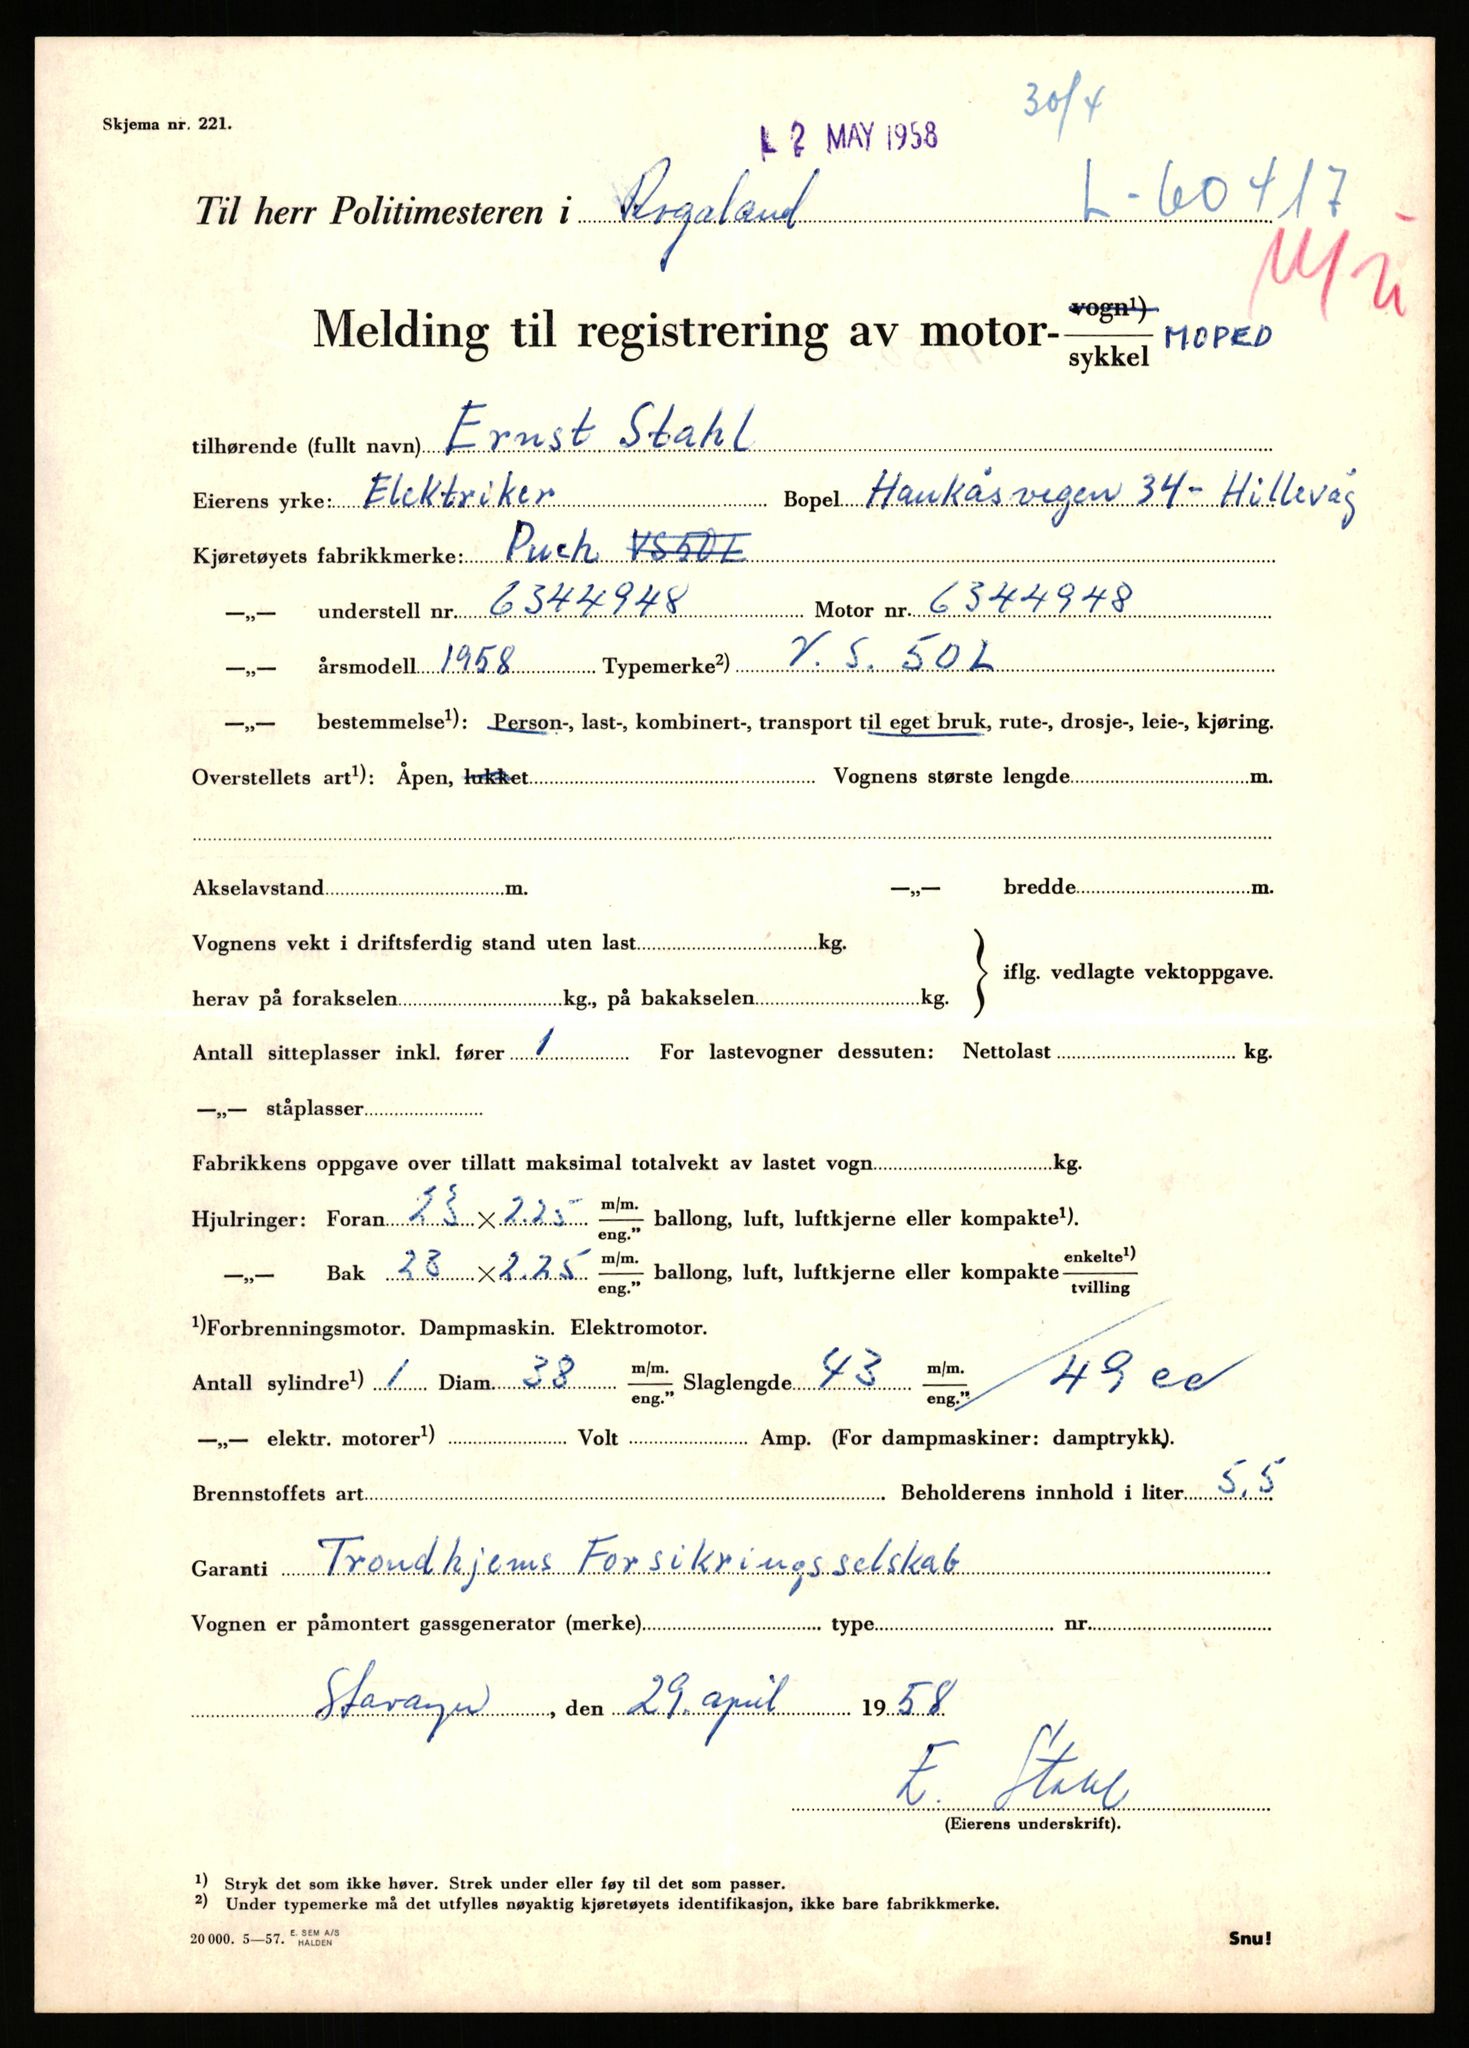 Skjema nr. 221.
30/4
2 MAY 1958
Til herr Politimesteren i Rogaland L-60417
Melding til registrering av motor- vogn¹) sykkel MOPED
tilhørende (fullt navn) Ernst Stahl
Eierens yrke: Elektriker Bopel Haukåsvegen 34 - Hillevåg
Kjøretøyets fabrikkmerke: Puch VS50L
—„— understell nr. 6344948 Motor nr. 6344948
—„— årsmodell 1958 Typemerke²) V. S. 50 L
—„— bestemmelse¹): Person-, last-, kombinert-, transport til eget bruk, rute-, drosje-, leie-, kjøring.
Overstellets art¹): Åpen, lukket Vognens største lengde m.
Akselavstand m. —„— bredde m.
Vognens vekt i driftsferdig stand uten last kg.
herav på forakselen kg., på bakakselen kg. } iflg. vedlagte vektoppgave.
Antall sitteplasser inkl. fører 1 For lastevogner dessuten: Nettolast kg.
—„— ståplasser
Fabrikkens oppgave over tillatt maksimal totalvekt av lastet vogn kg.
Hjulringer: Foran 23 × 2.25 m/m. eng.” ballong, luft, luftkjerne eller kompakte¹).
—„— Bak 23 × 2.25 m/m. eng.” ballong, luft, luftkjerne eller kompakte enkelte¹) tvilling
¹)Forbrenningsmotor. Dampmaskin. Elektromotor.
Antall sylindre¹) 1 Diam. 38 m/m. eng.” Slaglengde 43 m/m. eng.” 49 cc
—„— elektr. motorer¹) Volt Amp. (For dampmaskiner: damptrykk).
Brennstoffets art Beholderens innhold i liter 5,5
Garanti Trondhjems Forsikringsselskab
Vognen er påmontert gassgenerator (merke) type nr.
Stavanger, den 29. april 1958
E. Stahl
(Eierens underskrift).
¹) Stryk det som ikke høver. Strek under eller føy til det som passer.
²) Under typemerke må det utfylles nøyaktig kjøretøyets identifikasjon, ikke bare fabrikkmerke.
20 000. 5—57. E. SEM A/S HALDEN
Snu!